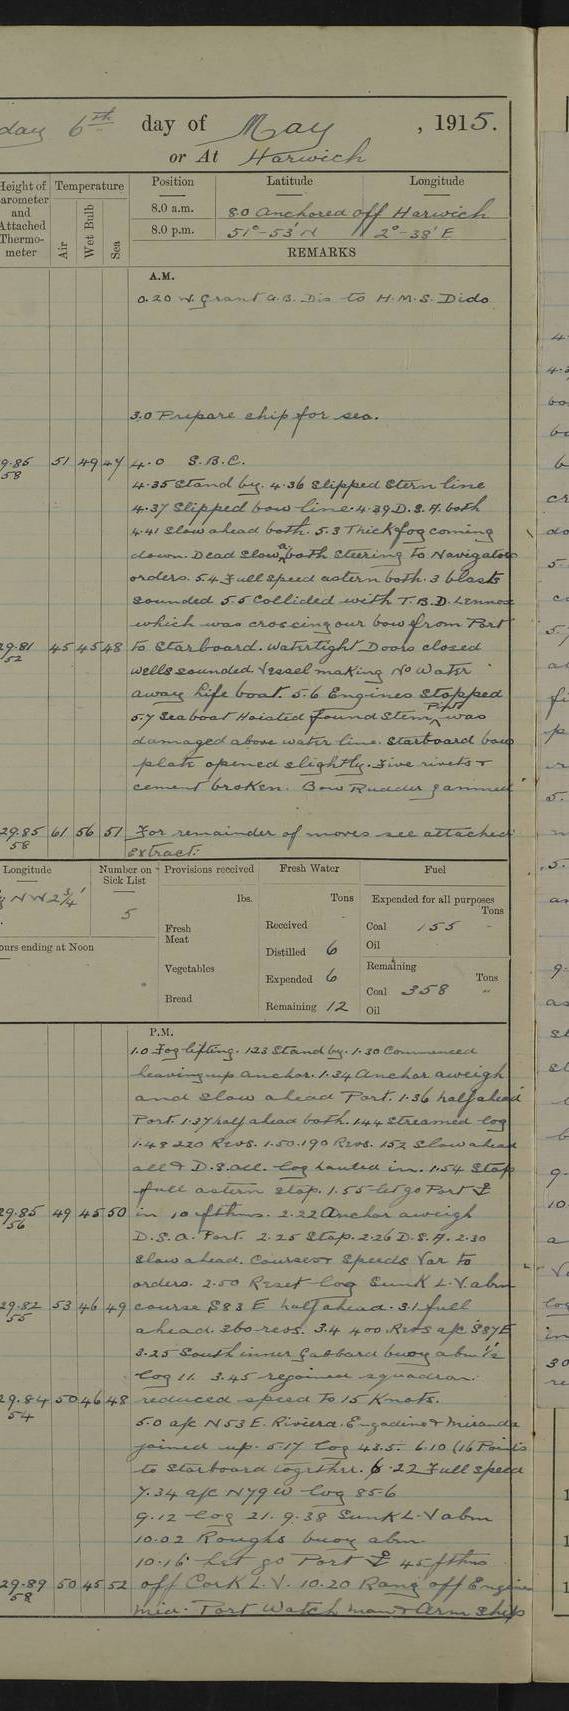 day 6th day of May, 1915.
or At Harwich
Height of Barometer and Attached Thermometer
Temperature
Air
Wet Bulb
Sea
Position Latitude Longitude
8.0 a.m. 8.0 anchored off Harwich
8.0 p.m. 51°-53' N 2°-38' E
REMARKS
A.M.
0.20 W. Grant A.B. Dis to H.M.S. Dido
3.0 Prepare ship for sea.
9.85 51 49 47 4.0 S.B.C.
58
4.35 Stand by. 4.36 Slipped Stern line
4.37 Slipped bow line. 4.39 D.S.A. both
4.41 Slow ahead both. 5.3 Thick fog coming
down. Dead Slow a both Steering to Navigators
orders. 5.4 Full speed astern both. 3 blasts
sounded 5.5 Collided with T.B.D. Lennox
which was crossing our bow from Port
29.81 45 45 48 to Starboard. Watertight Doors closed
52
wells sounded Vessel making No Water
away life boat. 5.6 Engines Stopped
5.7 Seaboat Hoisted found Stem Piece was
damaged above water line. Starboard bow
plate opened slightly. Five rivets +
cement broken. Bow Rudder jammed
29.85 61 56 51 For remainder of moves see attached
58
extract:
Longitude
NW 2 3/4'
Number on Sick List
5
Provisions received
lbs.
Fresh Meat
Vegetables
Bread
Fresh Water
Tons
Received
Distilled 6
Expended 6
Remaining 12
Fuel
Expended for all purposes
Tons
Coal 155 -
Oil
Remaining
Tons
Coal 358 "
Oil
ours ending at Noon
P.M.
1.0 Fog lifting. 1.23 Stand by. 1.30 Commenced
heaving up anchor. 1.34 Anchor aweigh
and slow ahead Port. 1.36 half ahead
Port. 1.37 half ahead both. 1.44 Streamed log
1.48 220 Revs. 1.50. 190 Revs. 1.52 Slow ahead
all & D.S. all. log hauled in. 1.54 Stop
full astern stop. 1.55 let go Port ⚓
29.85 49 45 50 in 10 fthms. 2.22 Anchor aweigh
56
D.S.a. Port. 2.25 Stop. 2.26 D.S.A. 2.30
Slow ahead. Courses + Speeds Var to
orders. 2.50 Reset log Sunk L.V. abm
29.82 53 46 49 course S83 E half ahead. 3.1 full
55
ahead. 360 revs. 3.4 400 Revs a/c S87E
3.25 South inner Gabbard buoy abm 1/2
log 11. 3.45 rejoined squadron.
29.84 50 46 48 reduced speed to 15 Knots.
54
5.0 a/c N53E. Riviera. Engadine & Miranda
joined up. 5.17 log 43.5. 6.10 (16 Points
to Starboard together. 6.22 Full speed
7.34 a/c N79W log 85.6
9.12 log 21. 9.38 Sunk L.V abm
10.02 Roughs buoy abm
10.16 let go Port ⚓ 45 fthms
29.89 50 45 52 off Cork L.V. 10.20 Rang off Engines
58
mid. Port Watch man & Arm Ship